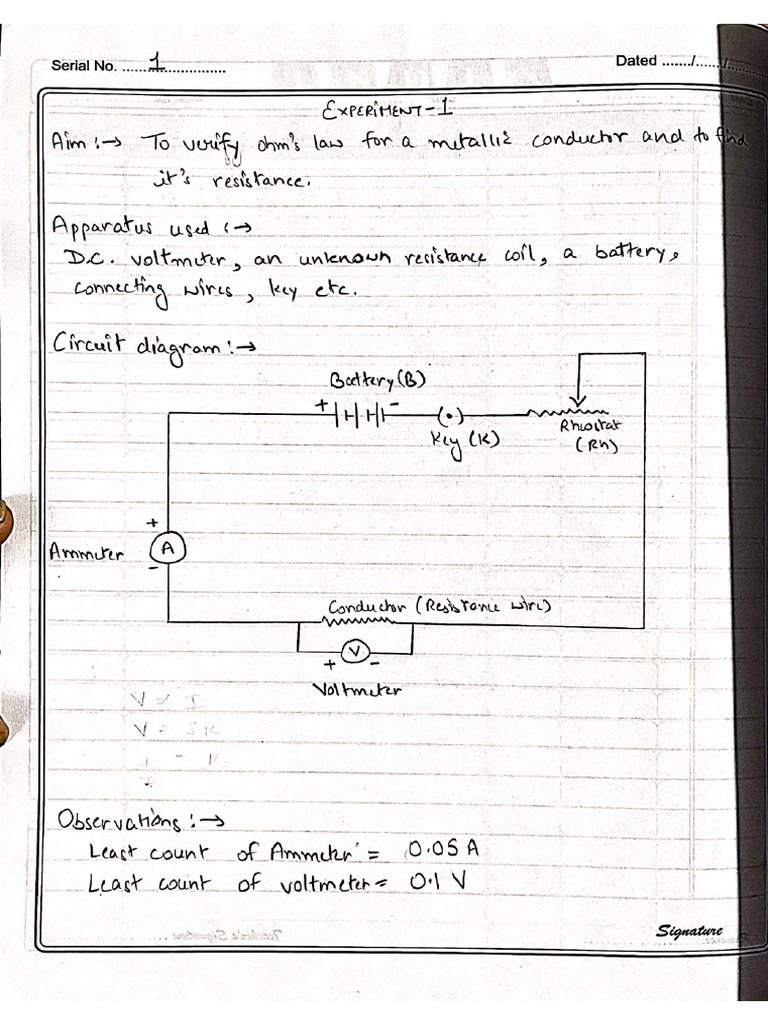 Serial No. ...... 1 ...............
Dated ......./......./.......
EXPERIMENT-1
Aim :→ To verify ohm's law for a metallic conductor and to find
it's resistance.
Apparatus used :→
D.C. voltmeter, an unknown resistance coil, a battery,
connecting wires, key etc.
Circuit diagram :→
Battery (B)
+ -
(•)
Key (K)
Rheostat
(Rh)
+
Ammeter A
-
Conductor (Resistance wire)
V
+ -
Voltmeter
V ∝ I
V = IR
Observations :→
Least count of Ammeter = 0.05 A
Least count of voltmeter = 0.1 V
Signature
Teacher's Signature